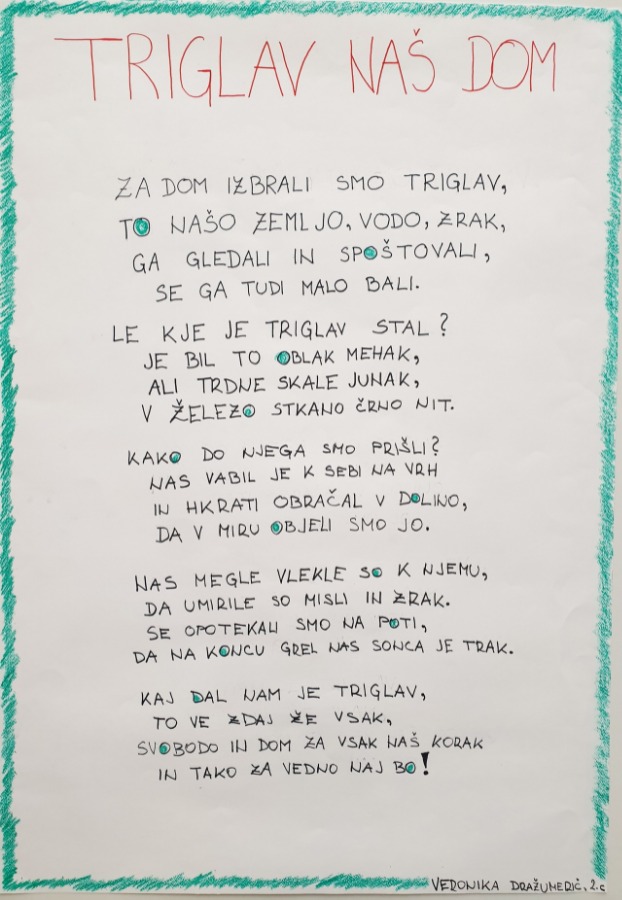 TRIGLAV NAŠ DOM
ZA DOM IZBRALI SMO TRIGLAV,
TO NAŠO ZEMLJO, VODO, ZRAK,
GA GLEDALI IN SPOŠTOVALI,
SE GA TUDI MALO BALI.
LE KJE JE TRIGLAV STAL?
JE BIL TO OBLAK MEHAK,
ALI TRDNE SKALE JUNAK,
V ŽELEZO STKANO ČRNO NIT.
KAKO DO NJEGA SMO PRIŠLI?
NAS VABIL JE K SEBI NA VRH
IN HKRATI OBRAČAL V DOLINO,
DA V MIRU OBJELI SMO JO.
NAS MEGLE VLEKLE SO K NJEMU,
DA UMIRILE SO MISLI IN ZRAK.
SE OPOTEKALI SMO NA POTI,
DA NA KONCU GREL NAS SONCA JE TRAK.
KAJ DAL NAM JE TRIGLAV,
TO VE ZDAJ ŽE VSAK,
SVOBODO IN DOM ZA VSAK NAŠ KORAK
IN TAKO ZA VEDNO NAJ BO!
VERONIKA DRAŽUMERIČ, 2.c